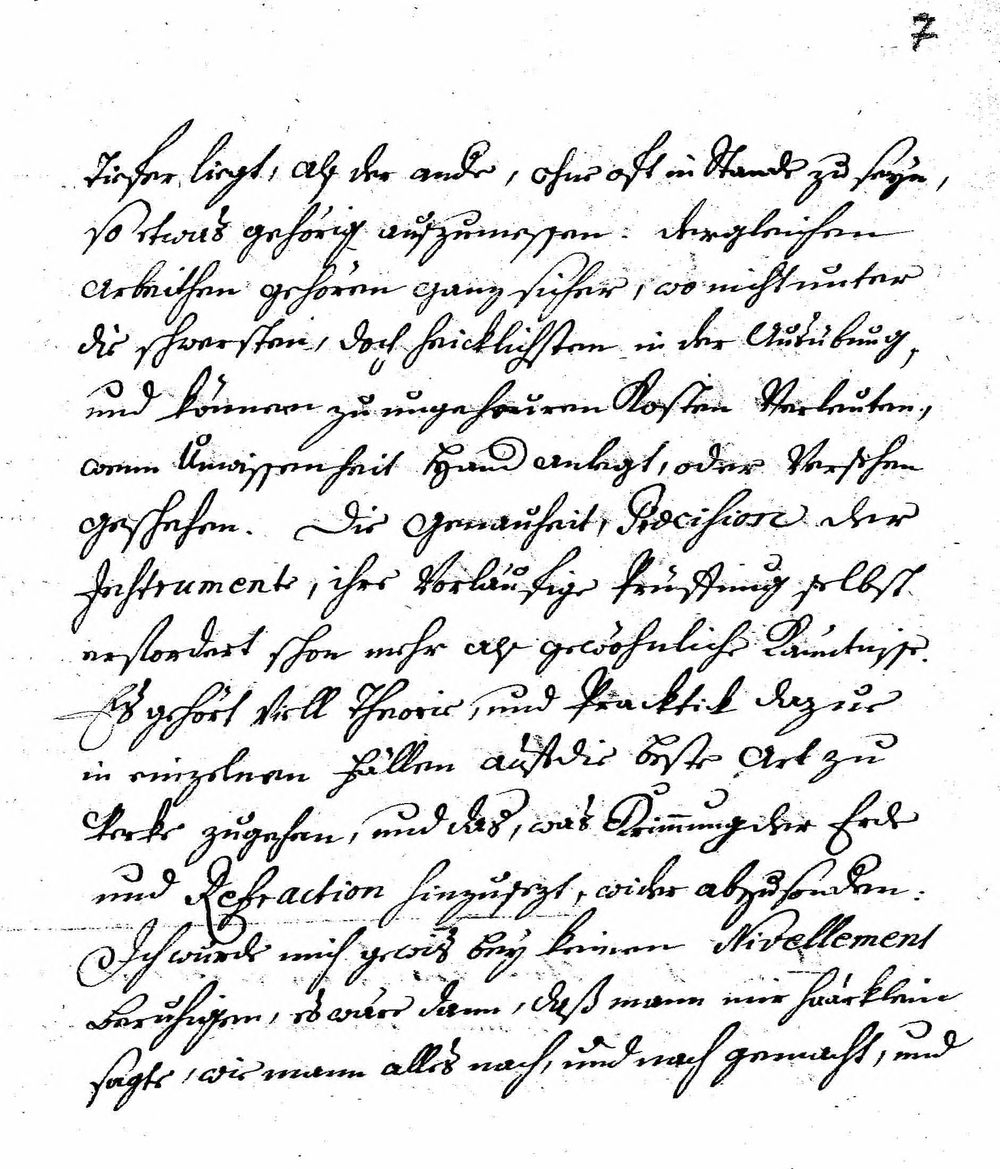 7
tiefer liegt, alß der andre, ohne oft in Stande zu seyn,
so etwas gehörig auszumessen: dergleichen
arbeithen gehören ganz sicher, wo nicht unter
die schwersten, doch heicklichsten in der Ausübung,
und können zu ungeheuren Kosten Verleuten,
wenn Unwissenheit Hand anlegt, oder Versehen
geschehen. Die Genauheit, Præcision der
Instrumente, ihre Vorläufige Prüffung selbst
erfordert schon mehr alß gewöhnliche Käntnisse.
Es gehört Viell Theorie, und Pracktik dazue
in einzelnen Fällen auf die beste Art zu
Werke zugehen, und das, was Krimmung der Erde
und Refraction hinzusezt, wider abzusonden:
Ich würde mich gewis bey keinen Nivellement
Beruhigen, es wäre dann, daß mann mir haarklein
sagte, wie mann alles nach, und nach gemacht, und